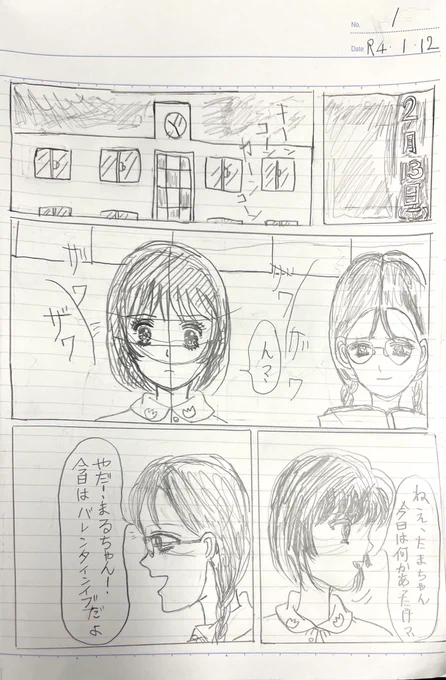 No. 1
Date R4・1・12
2月13日
キーンコーンカーンコーン
ザワ
ザワ
ザワ
ザワ
んマ、
ねえ、たまちゃん
今日は何かあった日マ、
やだー、まるちゃんー！
今日はバレンタインイブだよ